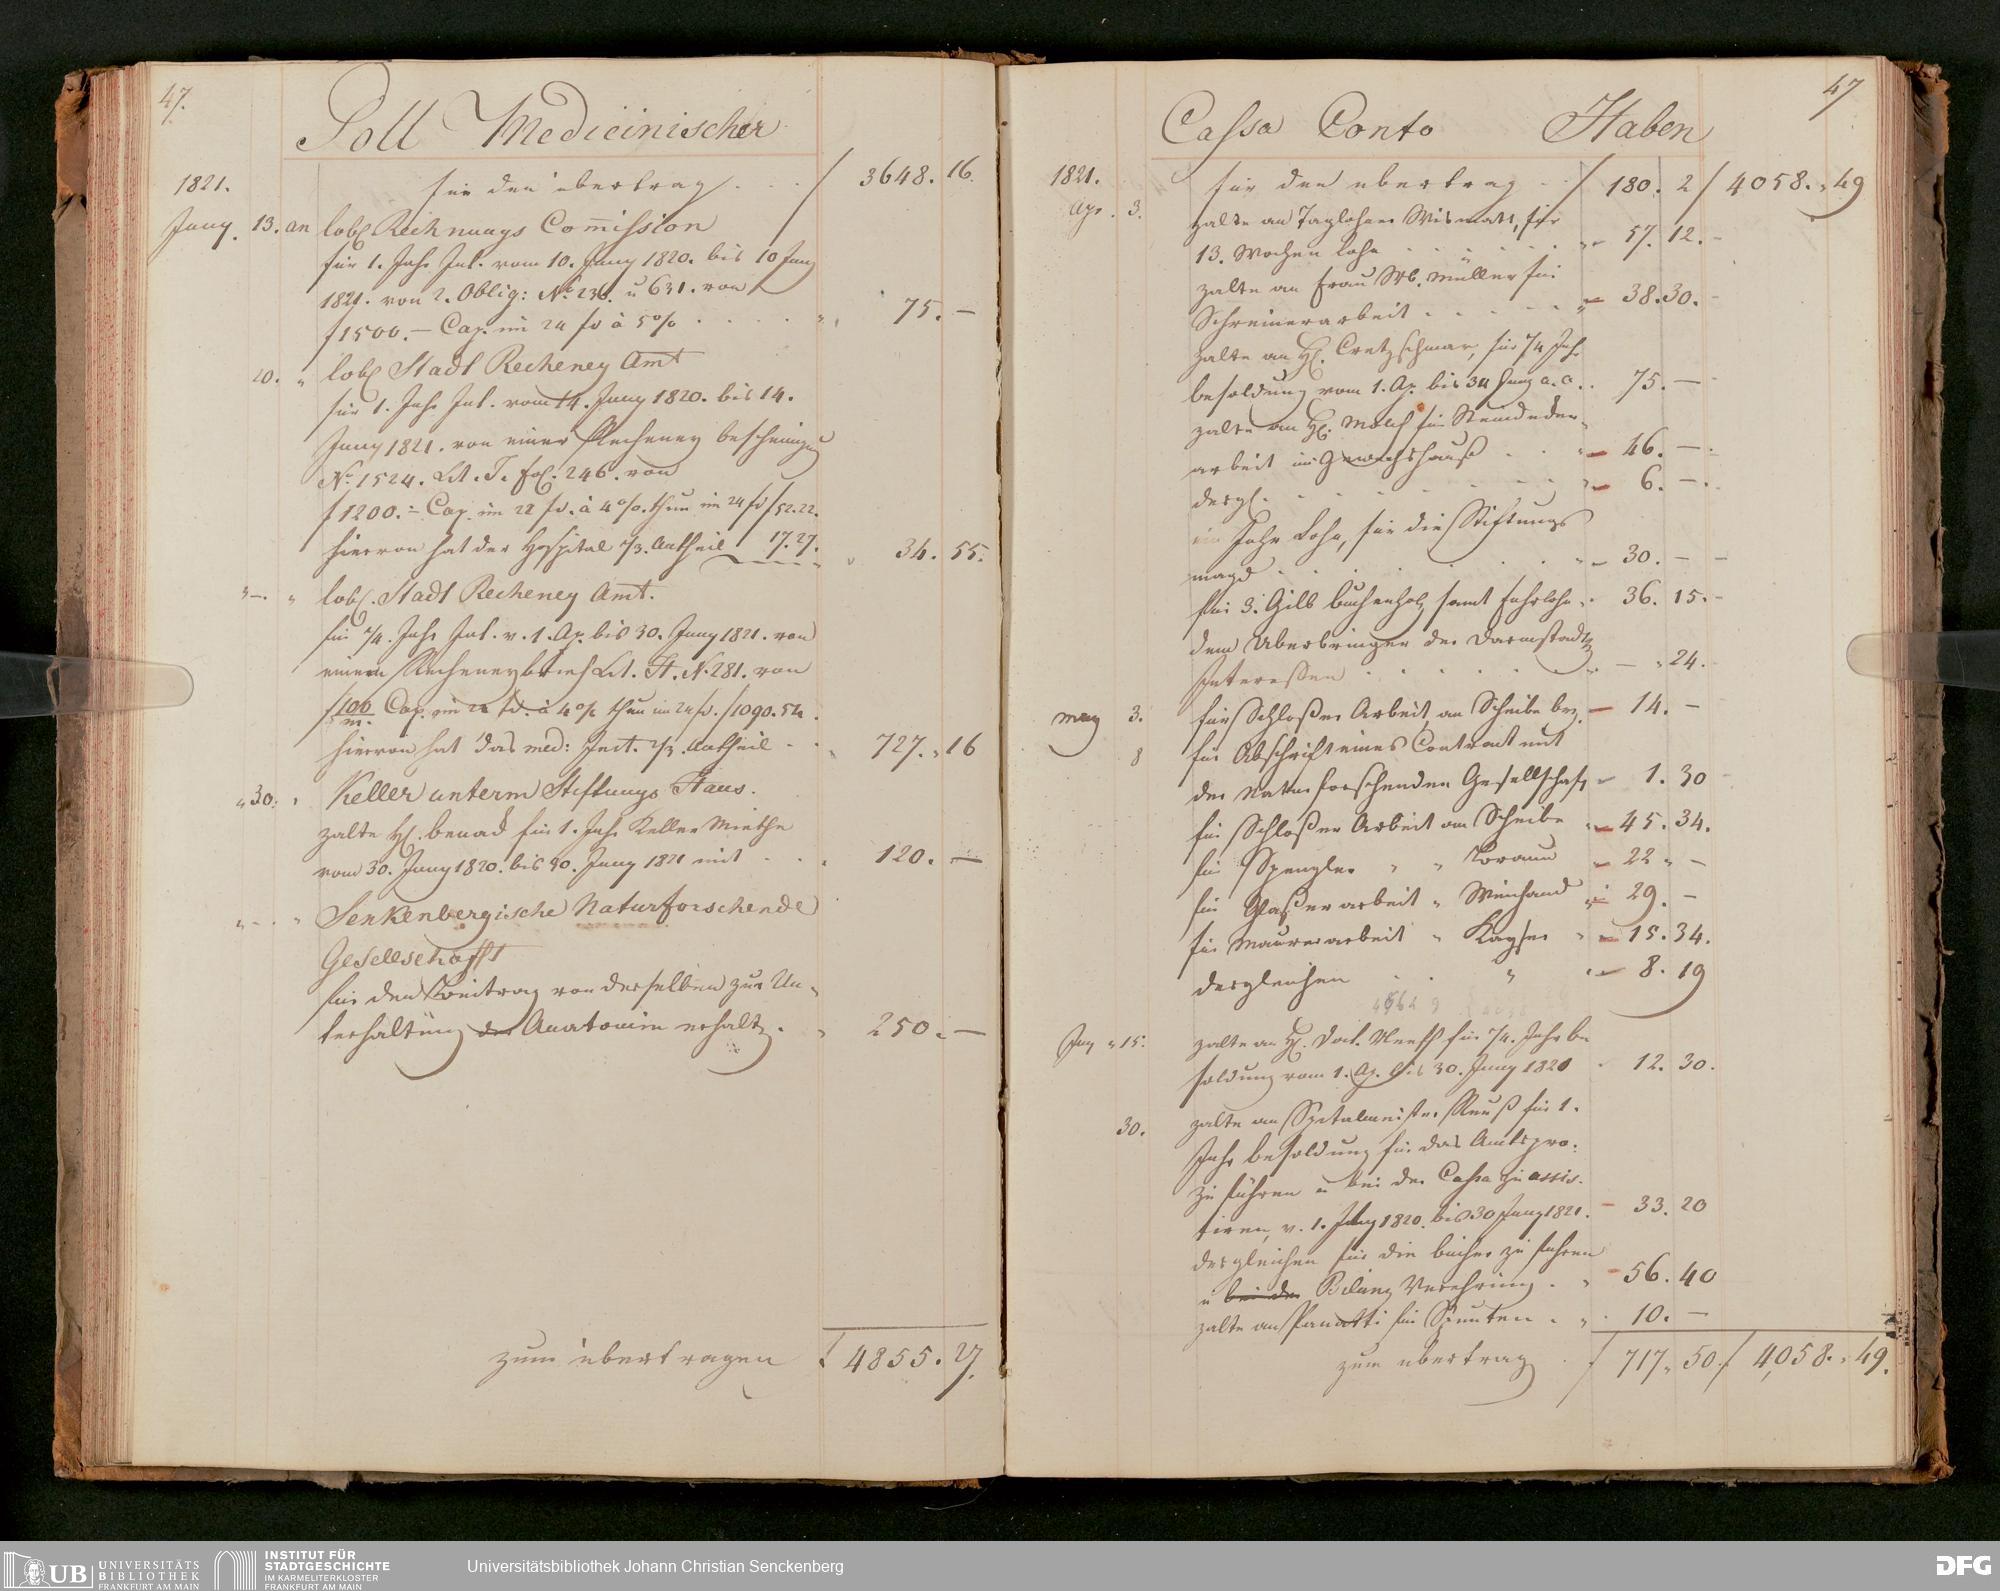 47.
Soll Medicinischer
1821. für den übertrag . . . f 3648. 16.
Juny. 13. an löbl. Rechnungs Commission
für 1. Jahr Int. vom 10. Juny 1820. bis 10 Juny
1821. von 2. Oblig: No. 236. u 631. von
f 1500. — Cap. im 24 fs à 5% . . . . " 75. —
20. " löbl. Stadt Recheney Amt
für 1. Jahr Int. vom 14. Juny 1820. bis 14.
Juny 1821. von einer Recheney bescheinigung
No. 1524. Lit. T. fol. 246. von
f 1200. — Cap. im 22 fs. à 4%. thun im 24 fs f 52.22.
hiervon hat der Hospital 1/3. Antheil 17.27. " 34. 55.
" —. " löbl. Stadt Recheney Amt.
für 1/4. Jahr Int. v. 1. Ap. bis 30. Juny 1821. von
einem Recheneybrief Lit. H. No. 281. von
f 100/m. Cap. im 22 fs. à 4% thun im 24 fs. f 1090.54.
hiervon hat das med: Inst. 2/3. Antheil . . " 727. " 16
" 30. " Keller unterm Stiftungs Haus.
zalte H. benad für 1. Jahr Keller Miethe
vom 30. Juny 1820. bis 30. Juny 1821 mit . . . 120. —
" —. " Senkenbergische Naturforschende
Gesellschafft
für den Beitrag von derselben zur Un-
terhaltung der Anatomie erhalt. . " 250. —
zum übertragen f 4855. 27.
47
Cassa Conto Haben
1821. für den übertrag . . f 180. 2 f 4058. " 49
Apr. 3. zalte an Taglohner Wismatt, für
13. Wochen Lohn . . . . . . " 57. 12.
zalte an Frau Wb. Müller für
Schreinerarbeit . . . . . " 38. 30.
zalte an H. Cretzschmar, für 1/4 Jahr
besoldung vom 1. Ap. bis 30 Juny a. c. . 75. —
zalte an H. für
arbeit im Gewechshauß . . . " 46. —
dergl. . . . . . . . . " 6. —
ein Jahr Lohn, für die Stiftungs
magd . . . . . . . . " 30. —
für 3. Gilb buchenholz samt fuhrlohn . 36. 15.
dem Überbringer der Darmstadt
Interessen . . . . . . . — " 24.
may 3. für Schloßer Arbeit, an Scheibe bez. 14. —
8 für Abschrift eines Contract mit
der Naturforschenden Gesellschaft 1. 30
für Schloßer Arbeit an Scheibe " 45. 34.
für Spengler " " 22 " —
für Glaßerarbeit " Weinhand " 29. —
für Maurerarbeit " Kayser " 15. 34.
dergleichen . . " . 8. 19
Juny " 15. zalte an H. Doct. Neeff für 1/4. Jahr be
soldung vom 1. Ap. bis 30. Juny 1821 . 12. 30.
30. zalte an Spitalmeister Reuß für 1.
Jahr besoldung für das Amtspro:
zu führen u bei der Cassa zu assis-
tiren, v. 1. July 1820. bis 30 Juny 1821. 33. 20
dergleichen für die bücher zu führen
u bei der Bilanz Verehrung . " 56. 40
zalte an Panatti für . " . 10. —
zum übertrag . f 717 " 50. f 4,058. " 49.
UB UNIVERSITÄTS
BIBLIOTHEK
FRANKFURT AM MAIN
INSTITUT FÜR
STADTGESCHICHTE
IM KARMELITERKLOSTER
FRANKFURT AM MAIN
Universitätsbibliothek Johann Christian Senckenberg
DFG